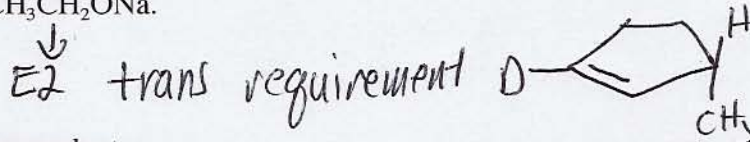 CH₃CH₂ONa.
E2 trans requirement D
H
CH₃